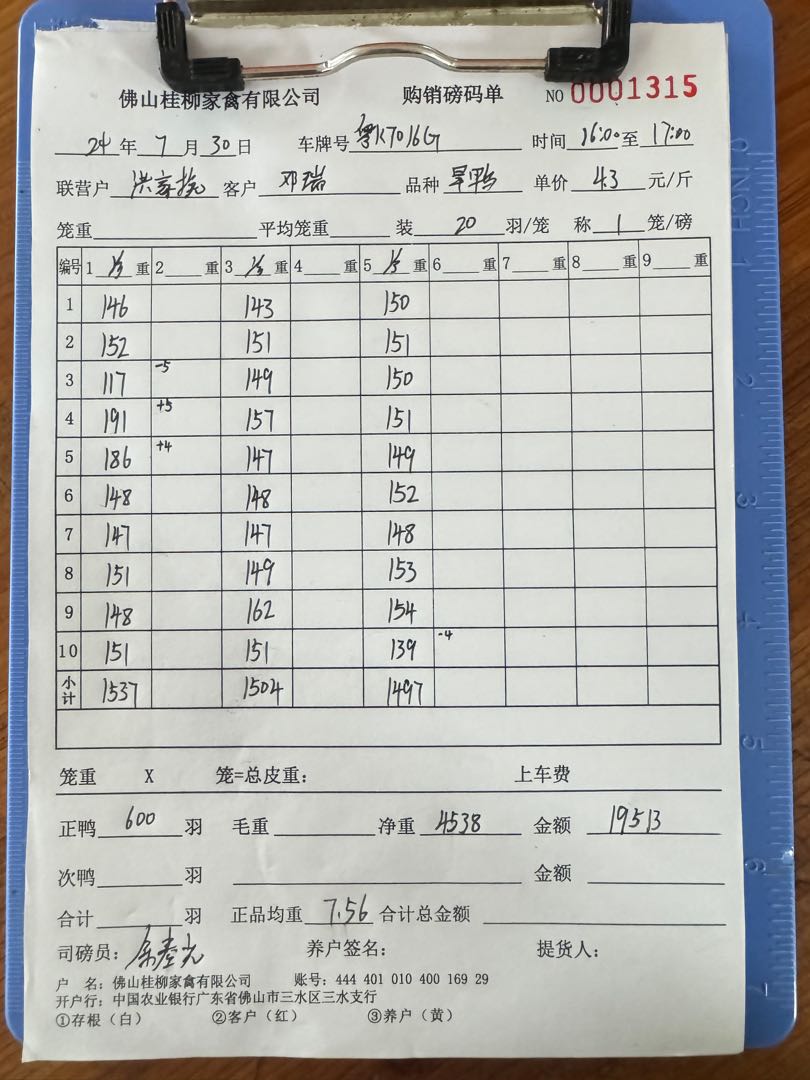 佛山桂柳家禽有限公司 购销磅码单 NO 0001315
24 年 7 月 30 日 车牌号 粤K7016G 时间 16:00 至 17:00
联营户 洪 客户 邓瑞 品种 旱鸭 单价 4.3 元/斤
笼重 平均笼重 装 20 羽/笼 称 1 笼/磅
编号 1 重 2 重 3 重 4 重 5 重 6 重 7 重 8 重 9 重
1 146 143 150
2 152 151 151
3 117 -5 149 150
4 191 +5 157 151
5 186 +4 147 149
6 148 148 152
7 147 147 148
8 151 149 153
9 148 162 154
10 151 151 139 -4
小计 1537 1504 1497
笼重 X 笼=总皮重: 上车费
正鸭 600 羽 毛重 净重 4538 金额 19513
次鸭 羽 金额
合计 羽 正品均重 7.56 合计总金额
司磅员: 养户签名: 提货人:
户 名: 佛山桂柳家禽有限公司 账号: 444 401 010 400 169 29
开户行: 中国农业银行广东省佛山市三水区三水支行
①存根（白） ②客户（红） ③养户（黄）
INCH 1 2 3 4 5 6 7